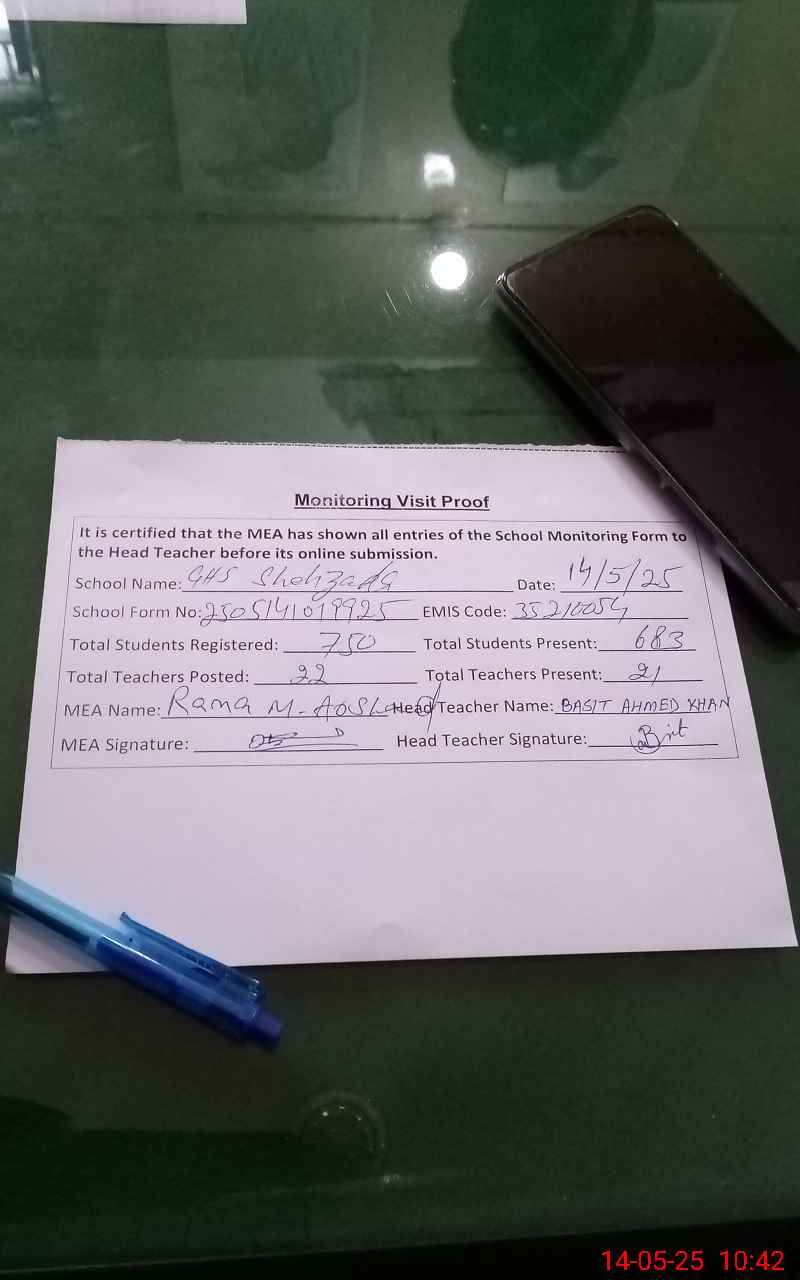 Monitoring Visit Proof
It is certified that the MEA has shown all entries of the School Monitoring Form to
the Head Teacher before its online submission.
School Name: GHS Shehzada Date: 14/5/25
School Form No: 2505141019925 EMIS Code: 35210054
Total Students Registered: 750 Total Students Present: 683
Total Teachers Posted: 22 Total Teachers Present: 21
MEA Name: Rana M. Head Teacher Name: BASIT AHMED KHAN
MEA Signature: Head Teacher Signature:
14-05-25 10:42